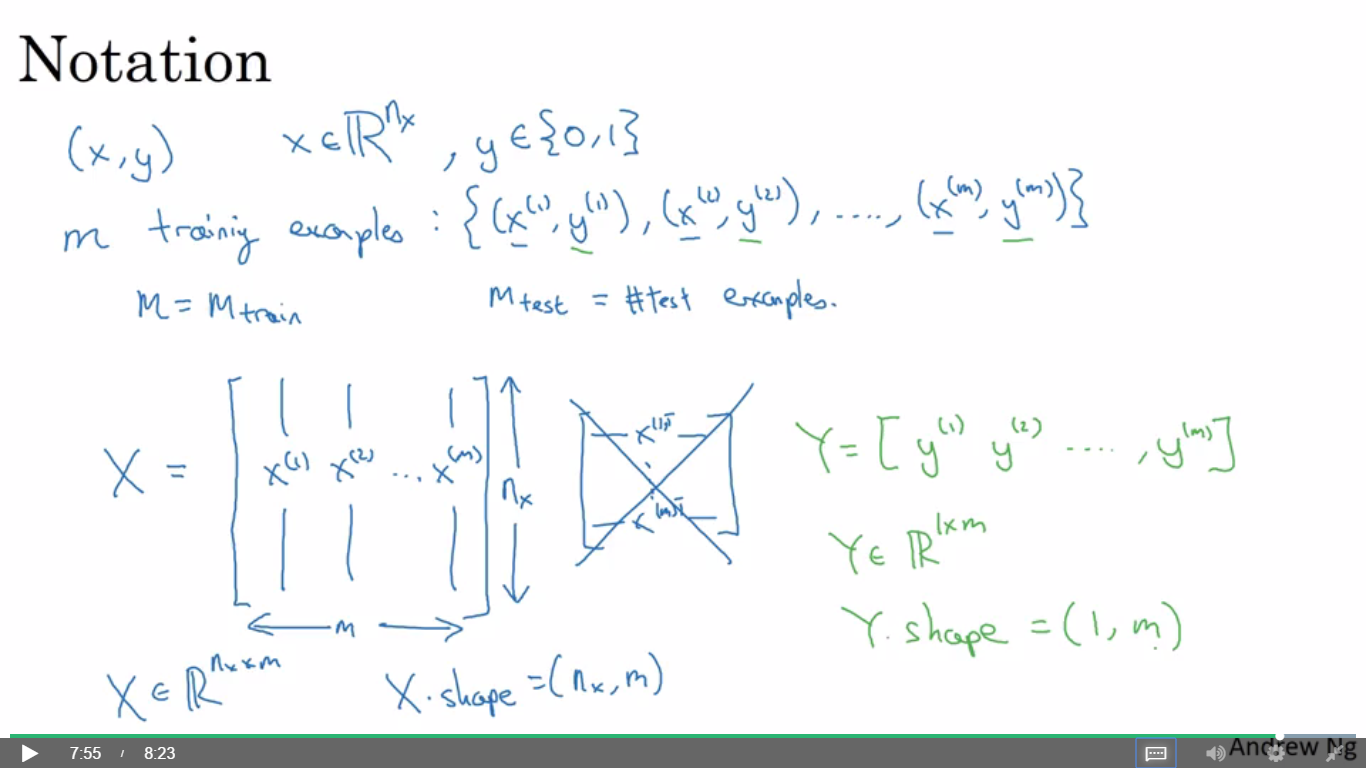 Notation
(x, y) x ∈ ℝ^{n_x}, y ∈ {0, 1}
m training examples : {(x^{(1)}, y^{(1)}), (x^{(2)}, y^{(2)}), ...., (x^{(m)}, y^{(m)})}
M = M_{train} M_{test} = #test examples.
X = [ x^{(1)} x^{(2)} ... x^{(m)} ] n_x
m
x^{(1)T}
x^{(m)T}
Y = [ y^{(1)} y^{(2)} ...., y^{(m)} ]
Y ∈ ℝ^{1×m}
Y.shape = (1, m)
X ∈ ℝ^{n_x × m} X.shape = (n_x, m)
7:55 / 8:23
Andrew Ng